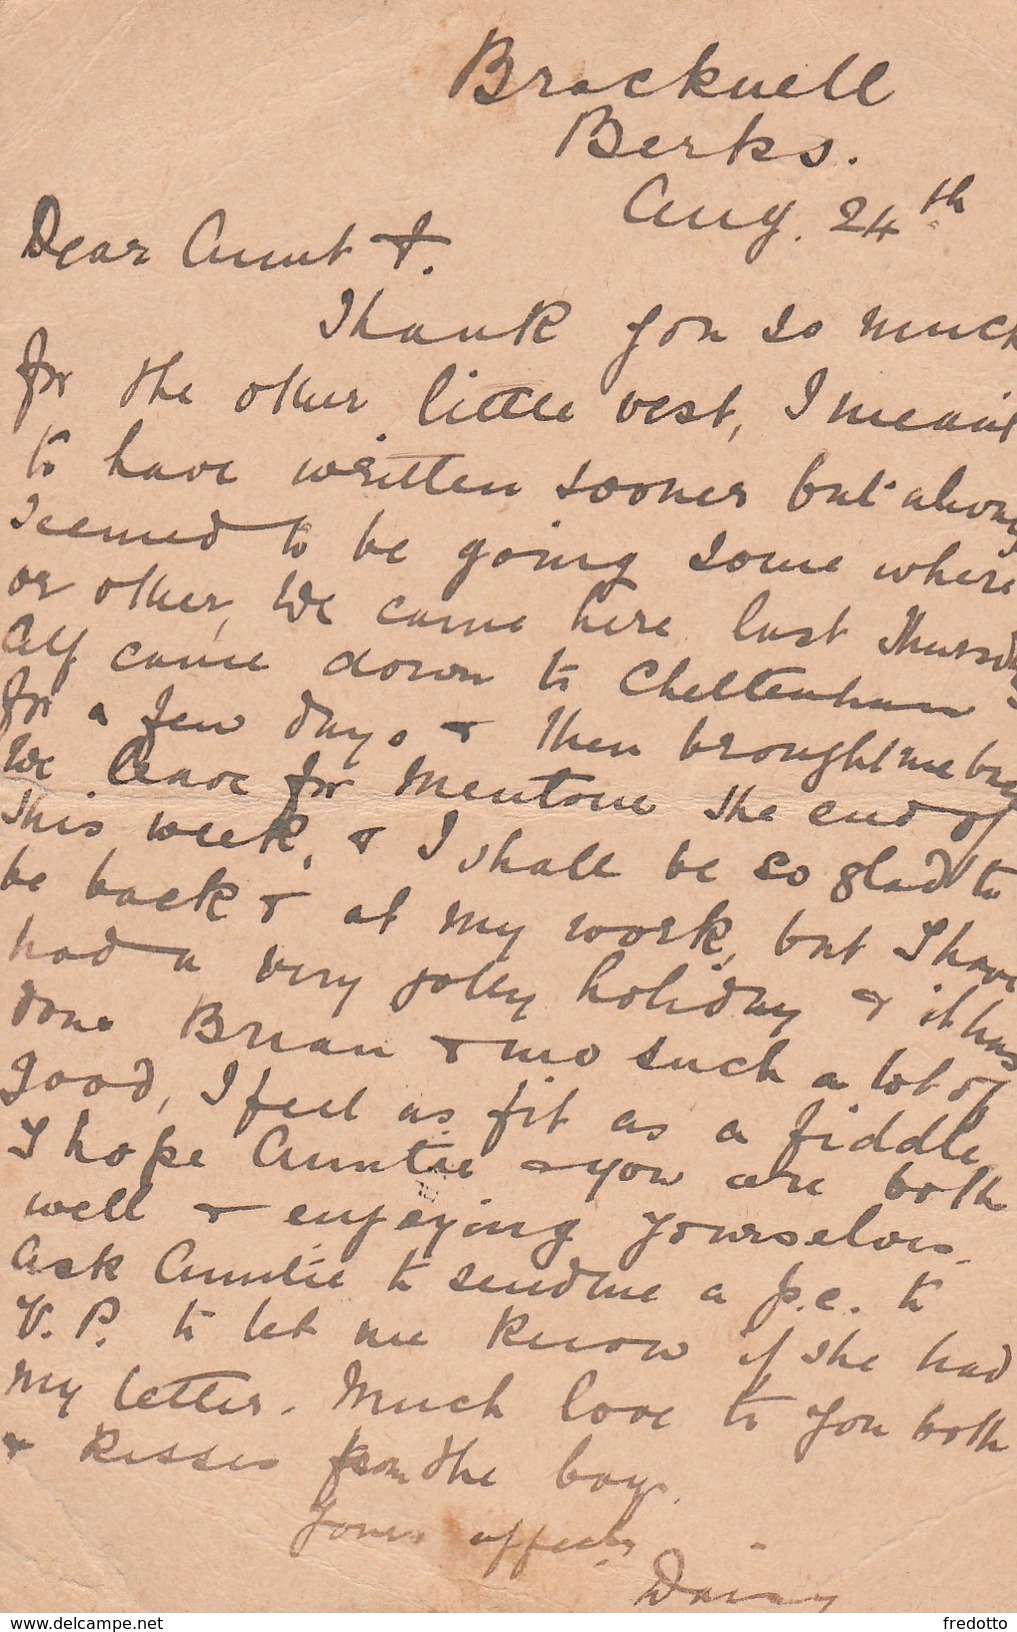 Bracknell
Berks.
Aug. 24th
Dear Aunt F.
Thank you so much
for the other little vest, I meant
to have written sooner but always
seemed to be going some where
or other, We came here last Thursday
Alf came down to Cheltenham
for a few days & then brought me
We leave for Mentone the end of
this week, & I shall be so glad to
be back & at my work, but I have
had a very jolly holiday & it has
done Brian & me such a lot of
good, I feel as fit as a fiddle
I hope Auntie & you are both
well & enjoying yourselves.
Ask Auntie to send me a p.c. to
V. P. to let me know if she had
my letter. Much love to you both
& kisses from the boy.
Yours affect.
Daisy
www.delcampe.net
fredotto